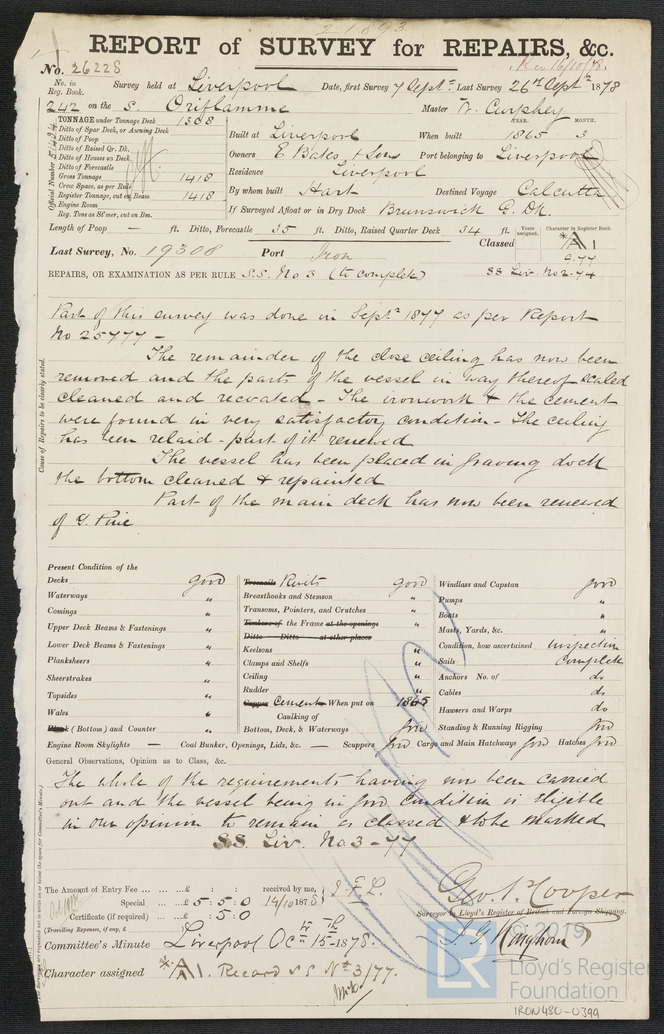 21893
REPORT of SURVEY for REPAIRS, &c.
No. 26228 Rec 16/10/78.
No. in Reg. Book. Survey held at Liverpool Date, first Survey 7 Septr. Last Survey 26th Septr 1878
242 on the S. Oriflamme Master W. Curphey
TONNAGE under Tonnage Deck 1308
Ditto of Spar Deck, or Awning Deck
Ditto of Poop
Ditto of Raised Qr. Dk.
Ditto of Houses on Deck
Ditto of Forecastle
Gross Tonnage 1418
Crew Space, as per Rule
Register Tonnage, cut on Beam 1418
Engine Room
Reg. Tons as St'mer, cut on Bm.
Official Number 51494
YEAR. MONTH.
Built at Liverpool When built 1865 3
Owners E Bates & Sons Port belonging to Liverpool
Residence Liverpool
By whom built Hart Destined Voyage Calcutta
If Surveyed Afloat or in Dry Dock Brunswick G. Dk.
Length of Poop — ft. Ditto, Forecastle 35 ft. Ditto, Raised Quarter Deck 34 ft.
Years assigned. Character in Register Book.
Last Survey, No. 19308 Port Iron Classed *A1
9.77
REPAIRS, OR EXAMINATION AS PER RULE S.S. No 3 (to complete) SS Liv. No2-74
Part of this survey was done in Septr 1877 as per Report
No 25777 —
The remainder of the close ceiling has now been
removed and the parts of the vessel in way thereof scaled
cleaned and recoated - The ironwork & the cement
were found in very satisfactory condition - The ceiling
has been relaid - part of it renewed
The vessel has been placed in graving dock
the bottom cleaned & repainted
Part of the main deck has now been renewed
of Y. Pine
Cause of Repairs to be clearly stated.
Present Condition of the
Decks good
Waterways "
Comings "
Upper Deck Beams & Fastenings "
Lower Deck Beams & Fastenings "
Planksheers "
Sheerstrakes "
Topsides "
Wales "
Plank (Bottom) and Counter "
Treenails Rivets good
Breasthooks and Stemson "
Transoms, Pointers, and Crutches "
Timbers of the Frame at the openings "
Ditto Ditto at other places
Keelsons "
Clamps and Shelfs "
Ceiling "
Rudder "
Copper Cement When put on 1865
Caulking of
Bottom, Deck, & Waterways good
Windlass and Capstan good
Pumps "
Boats "
Masts, Yards, &c. "
Condition, how ascertained inspection
Sails complete
Anchors No. of do
Cables do
Hawsers and Warps do
Standing & Running Rigging good
Engine Room Skylights — Coal Bunker, Openings, Lids, &c. — Scuppers good Cargo and Main Hatchways good Hatches good
General Observations, Opinion as to Class, &c.
The whole of the requirements having now been carried
out and the vessel being in good condition is eligible
in our opinion to remain as classed & to be marked
S.S. Liv. No.3-77
The Amount of Entry Fee ... ... £ : : received by me,
Special ... ... £ 5 : 5 : 0 14/10 1878
Certificate (if required) ... : 5 : 0
(Travelling Expenses, if any, £ )
Geo. S. Cooper
Surveyor to Lloyd's Register of British and Foreign Shipping.
Committee's Minute Liverpool Octr 15th-1878.
Character assigned *A1. Record SS No 3/77.
© 2019
LR
Lloyd's Register
Foundation
IRON480-0399